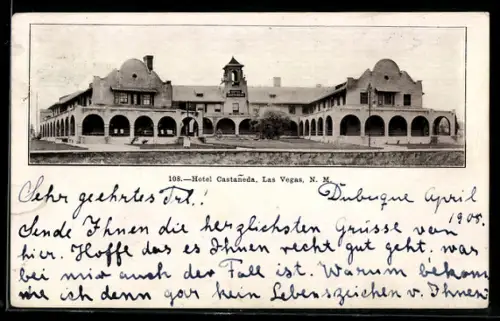 108.—Hotel Castañeda, Las Vegas, N. M.
Dubuque April
1905.
Sehr geehrtes Frl.!
Sende Ihnen die herzlichsten Grüsse von
hier. Hoffe das es Ihnen recht gut geht, was
bei mir auch der Fall ist. Warum bekom
me ich denn gar kein Lebenszeichen v. Ihnen